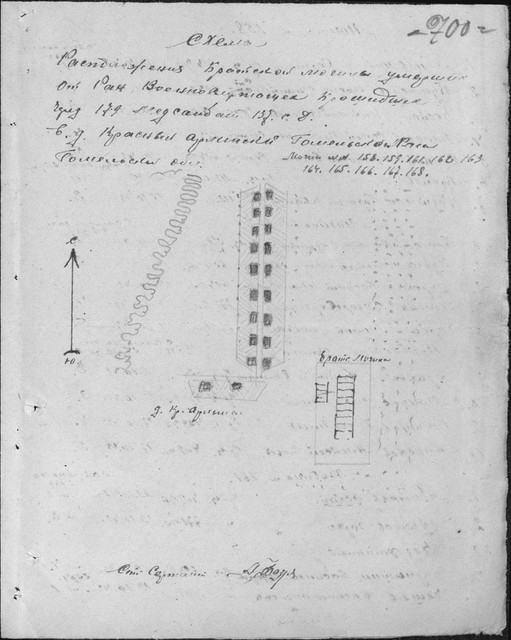 -700-
Схема
Расположения Братской могилы умерших
от Ран Военнослужащих прошедших
через 179 медсанбат 137 с. д.
в д. Красный Гомельской
Гомельской обл.
158. 159. 161. 162. 163
164. 165. 166. 167. 168.
С
Ю.
Братс. могила
д. Кр.
Ст. Сержант